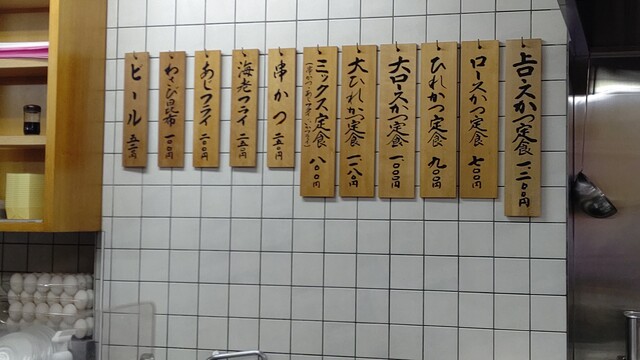 上ロースかつ定食 一、三〇〇円
ロースかつ定食 七〇〇円
ひれかつ定食 九〇〇円
大ロースかつ定食 一、〇〇〇円
大ひれかつ定食 一、一八〇円
ミックス定食 八〇〇円
串かつ 二五〇円
海老フライ 二五〇円
あじフライ 二〇〇円
わさび昆布 一〇〇円
ビール 五二〇円